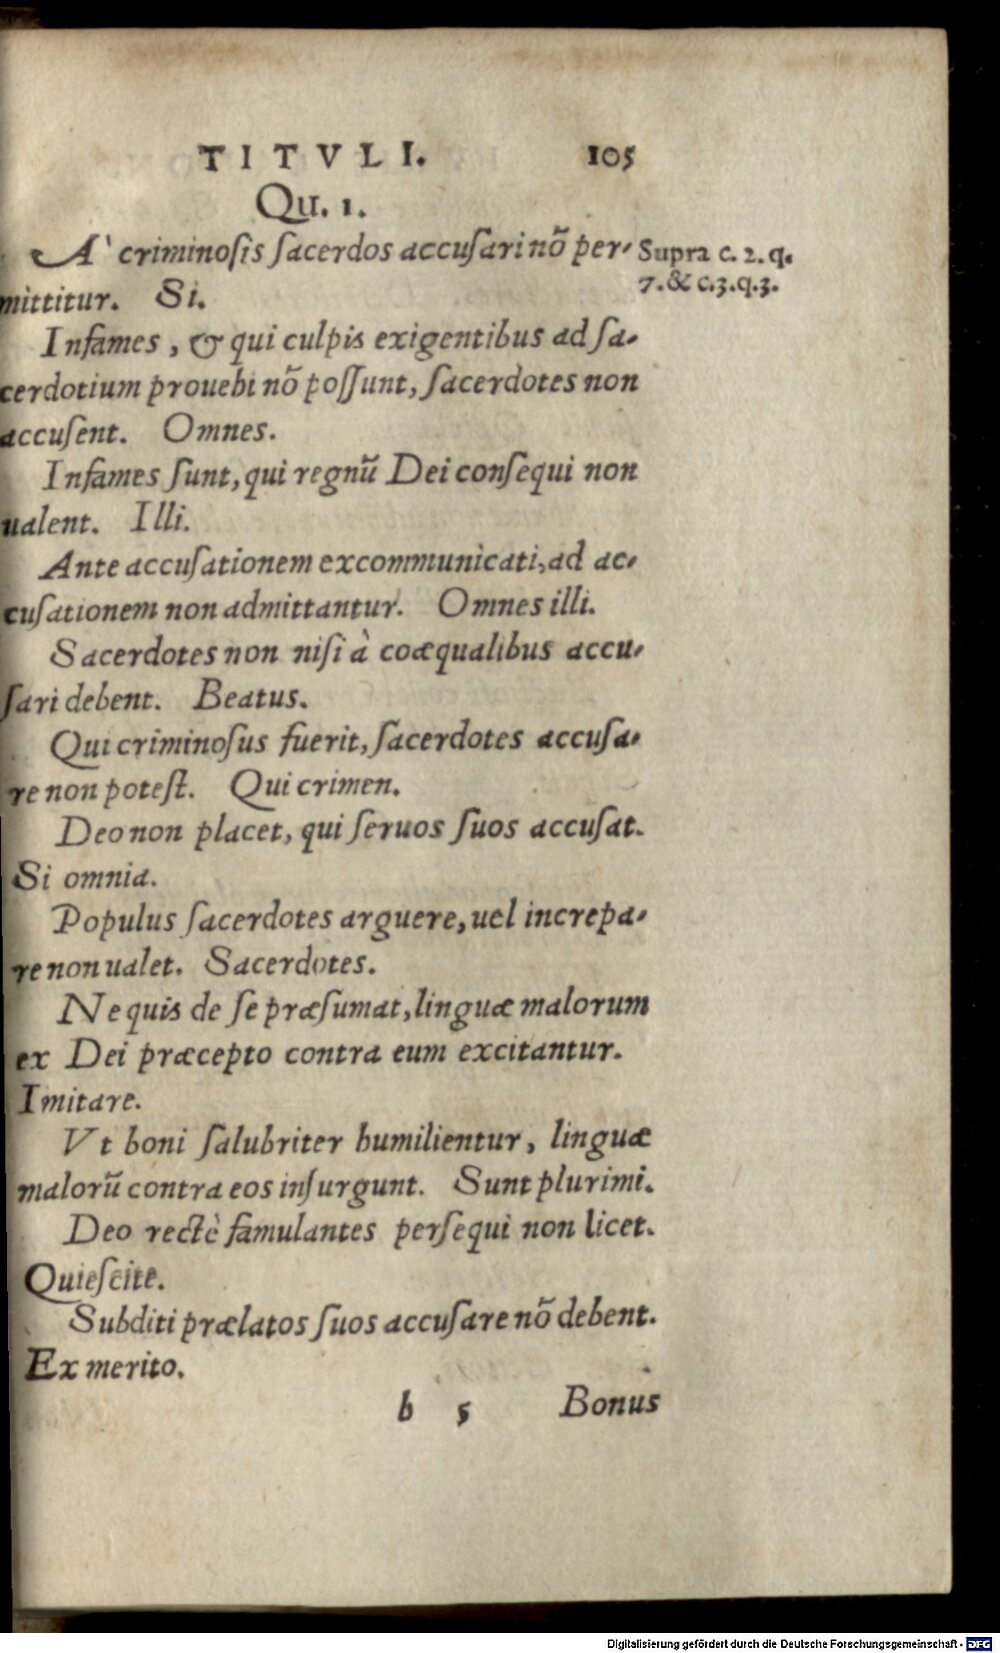 TITVLI. 105
Qu. 1.
A` criminosis sacerdos accusari nõ per- Supra c. 2. q.
mittitur. Si. 7. & c. 3. q. 3.
Infames, & qui culpis exigentibus ad sa-
cerdotium prouehi nõ possunt, sacerdotes non
accusent. Omnes.
Infames sunt, qui regnũ Dei consequi non
ualent. Illi.
Ante accusationem excommunicati, ad ac-
cusationem non admittantur. Omnes illi.
Sacerdotes non nisi à coæqualibus accu-
sari debent. Beatus.
Qui criminosus fuerit, sacerdotes accusa-
re non potest. Qui crimen.
Deo non placet, qui seruos suos accusat.
Si omnia.
Populus sacerdotes arguere, uel increpa-
re non ualet. Sacerdotes.
Ne quis de se præsumat, linguæ malorum
ex Dei præcepto contra eum excitantur.
Imitare.
Vt boni salubriter humilientur, linguæ
malorũ contra eos insurgunt. Sunt plurimi.
Deo rectè famulantes persequi non licet.
Quiescite.
Subditi prælatos suos accusare nõ debent.
Ex merito.
b 5 Bonus
Digitalisierung gefördert durch die Deutsche Forschungsgemeinschaft - DFG